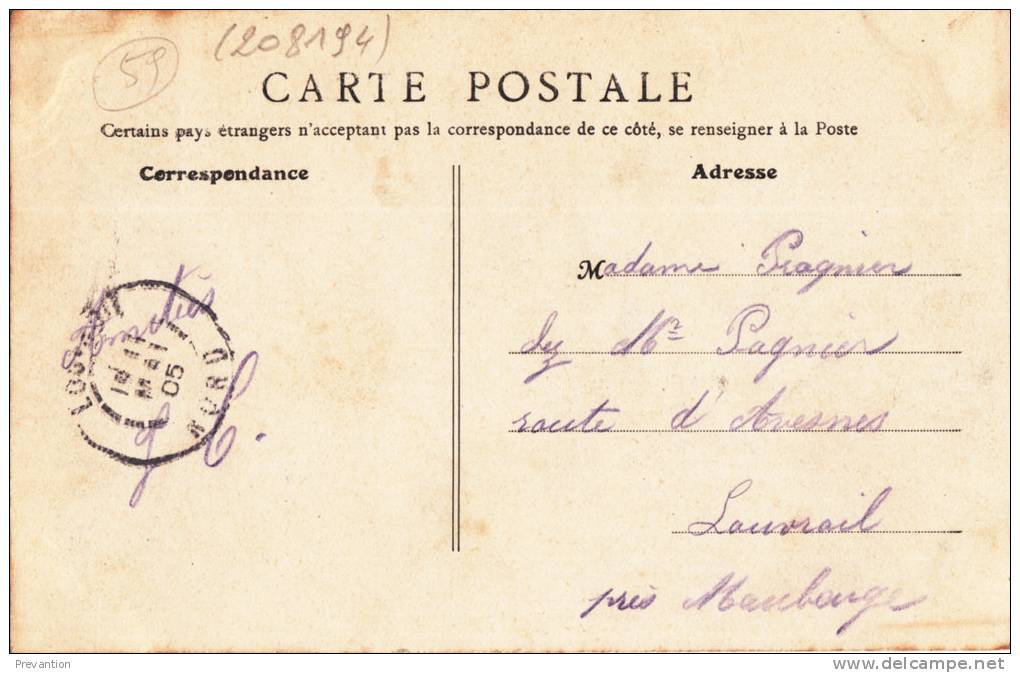 (208194)
59
CARTE POSTALE
Certains pays étrangers n'acceptant pas la correspondance de ce côté, se renseigner à la Poste
Correspondance
Adresse
Amitiés
14
MAI
05
NORD
Madame Pragnier
Mr Pagnier
route d'Avesnes
Louvroil
près Maubeuge
Prevantion
http://www.delcampe.net